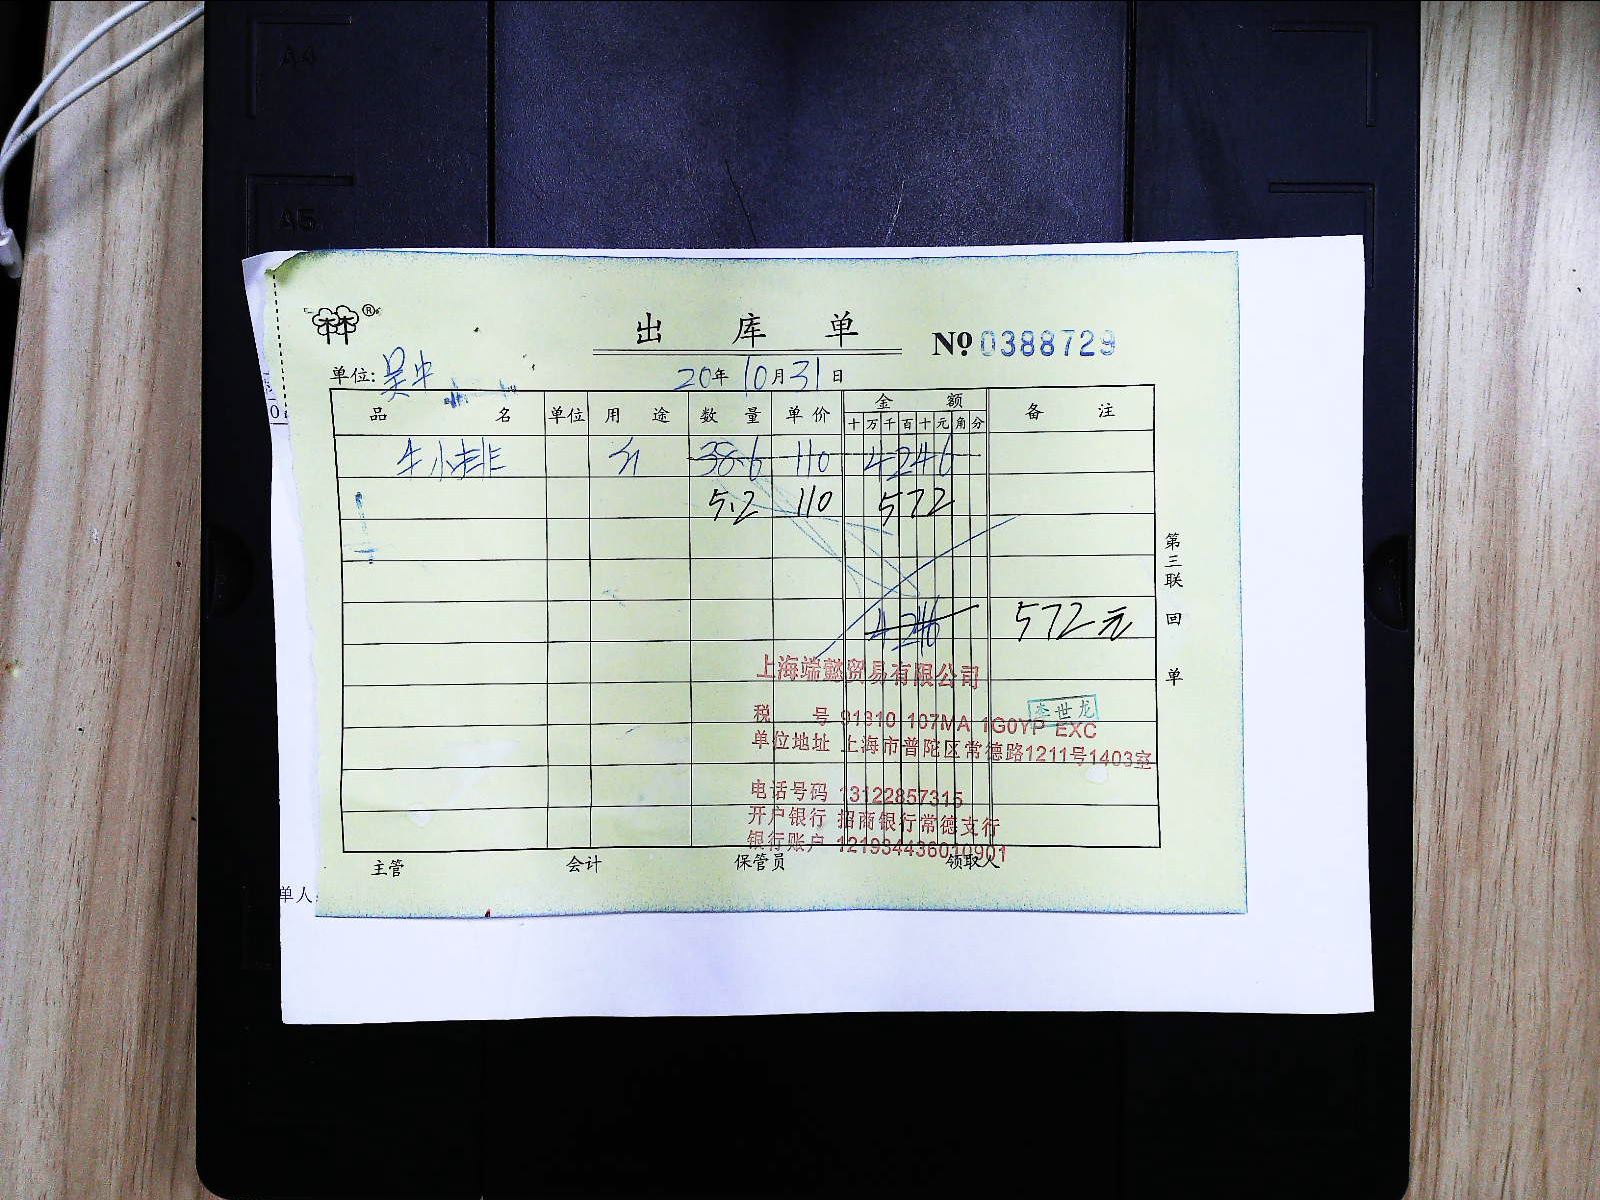 A4
A5
林®
出库单 No 0388729
单位: 吴中 20年10月31日
品名 单位 用途 数量 单价 金额 备注
十万千百十元角分
牛小排 38.6 110 4246
5.2 110 572
4246 572元
第三联 回单
上海端懿贸易有限公司
李世龙
税号 91310 107MA 1G0YP EXC
单位地址 上海市普陀区常德路1211号1403室
电话号码 13122857315
开户银行 招商银行常德支行
银行账户 121934436010901
主管 会计 保管员 领取人
单人: